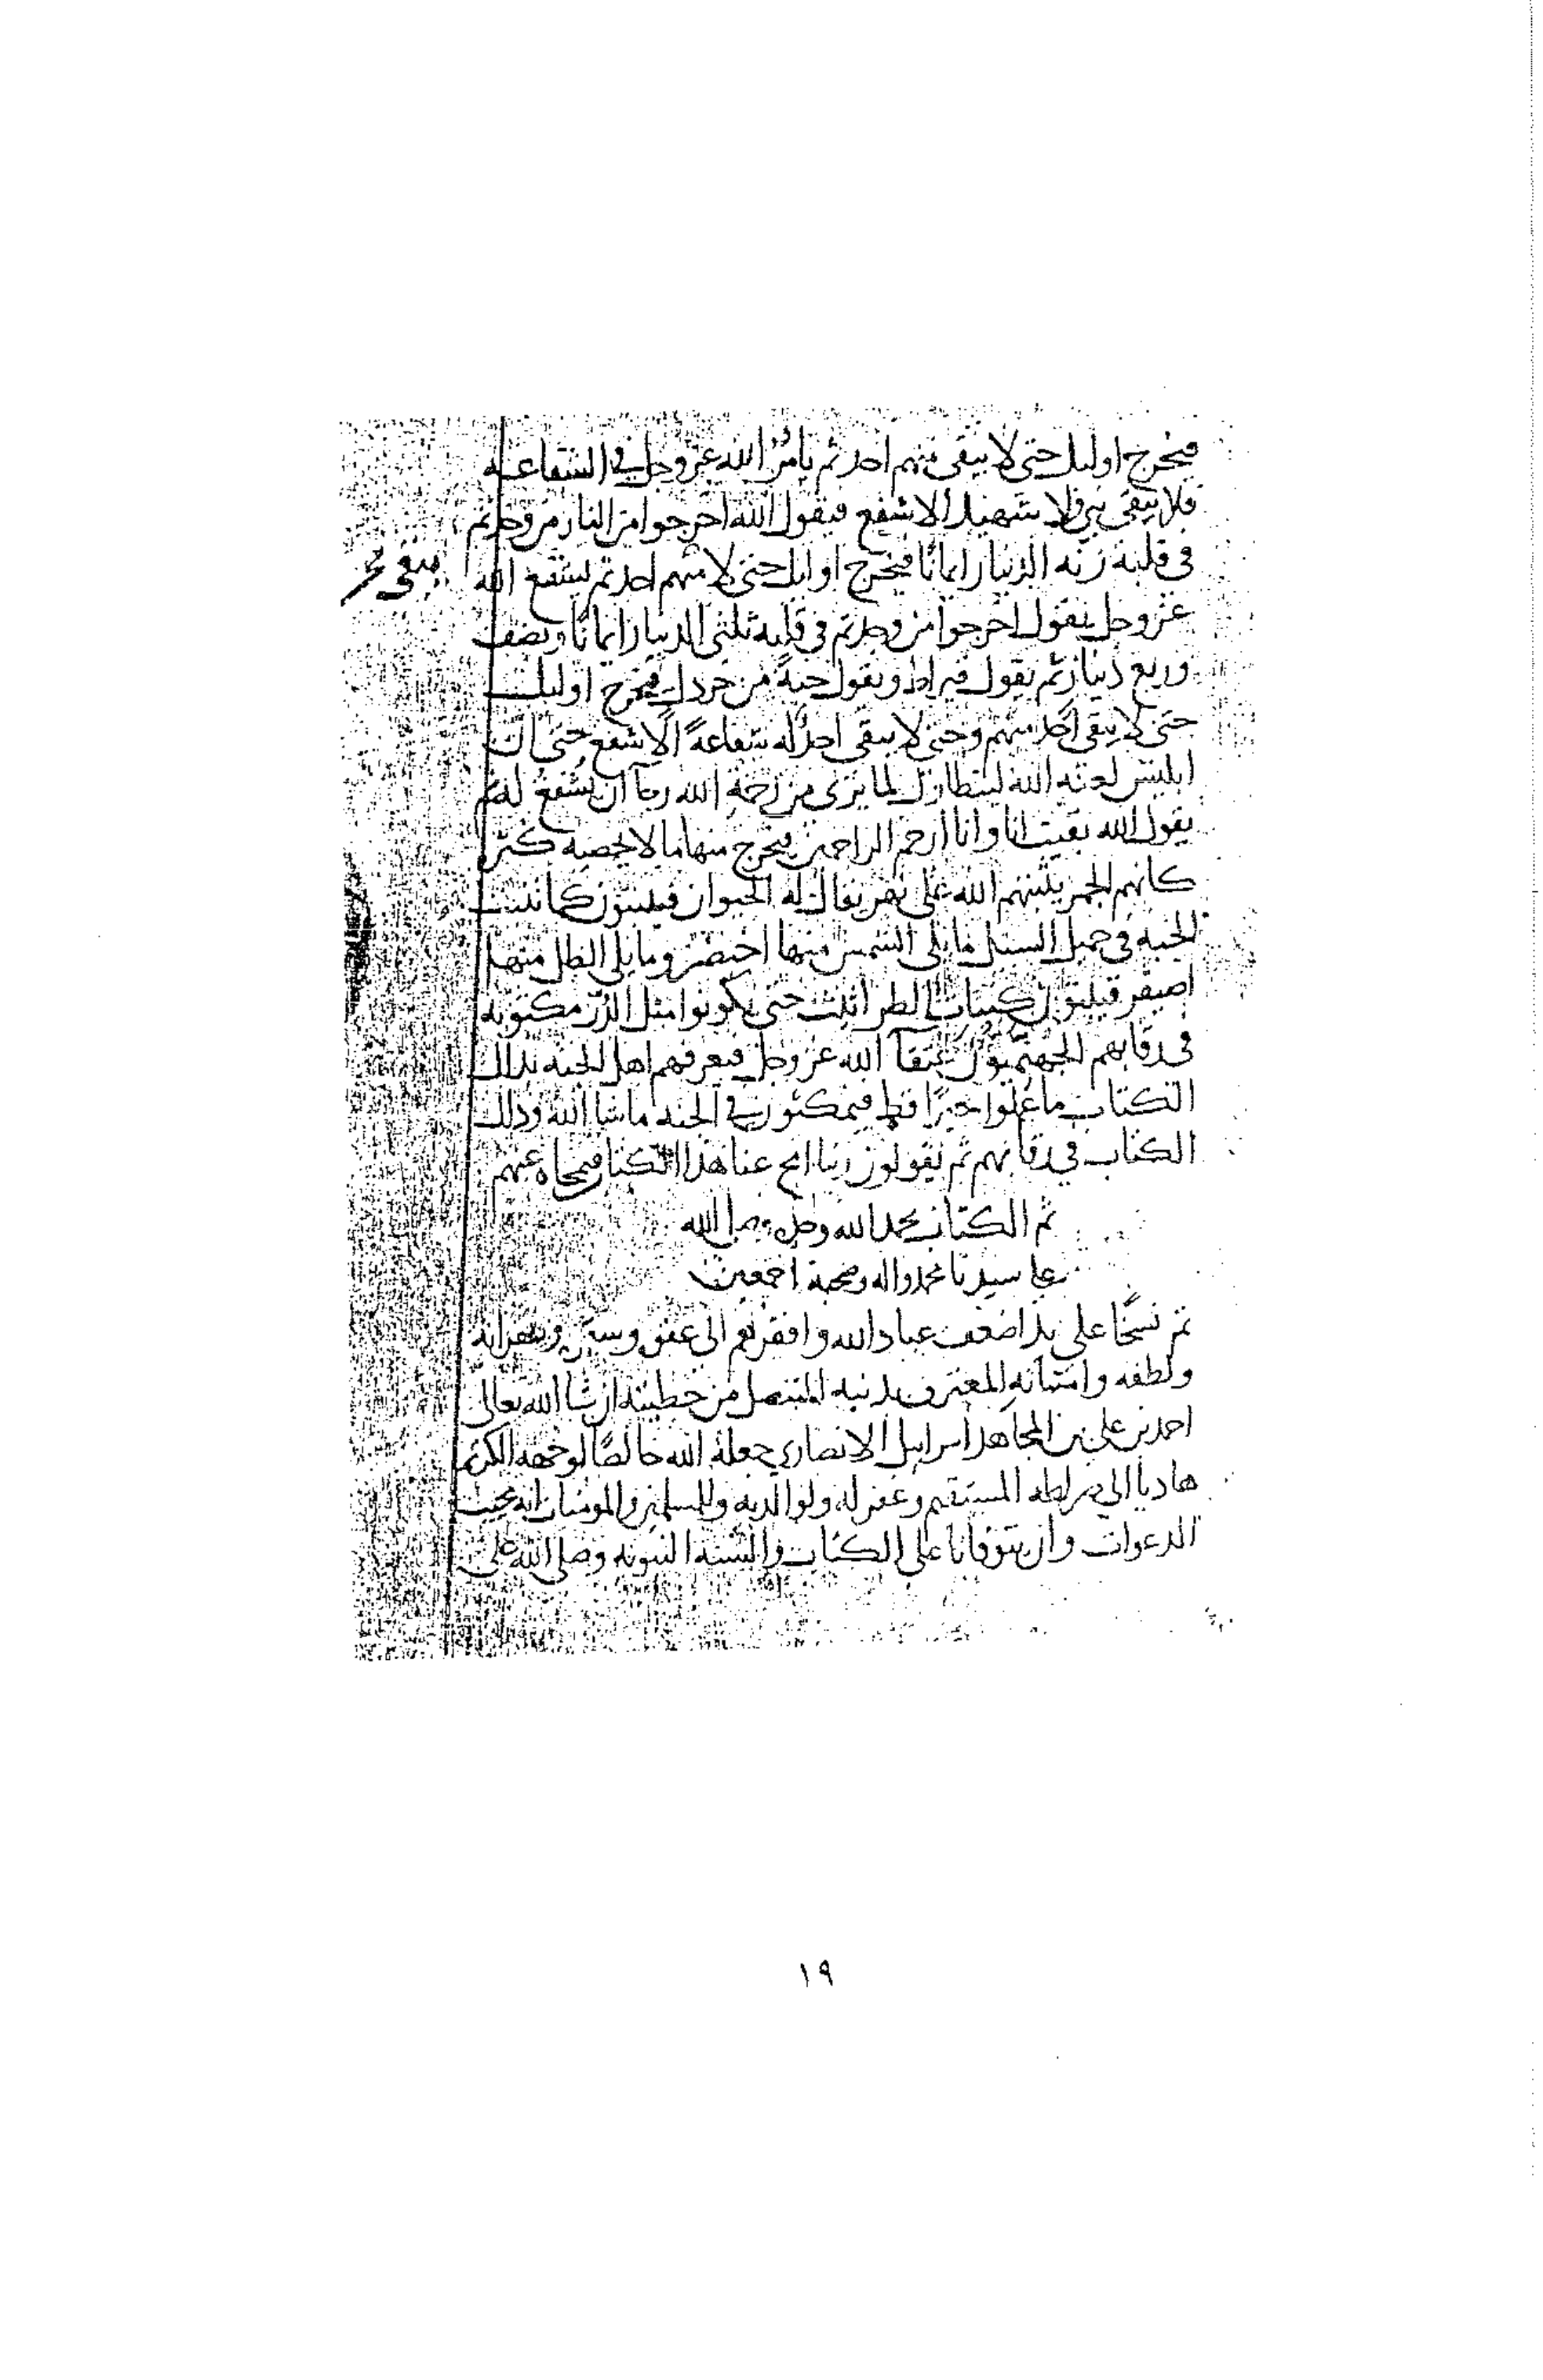 فيخرج اوليك حتى لا يبقى منهم احد ثم يامر الله عز وجل في الشفاعه
فلا يبقى نبي ولا شهيد الا شفع فيقول الله اخرجوا من النار من وجدتم
في قلبه زنه الدينار ايمانًا فيخرج اوليك حتى لا منهم احد ثم يشفع الله
يبقى
عز وجل فيقول اخرجوا من وجدتم في قلبه ثلثى الدينار ايمانًا ونصف
وربع دينار ثم يقول قيراط ويقول حبةً من خردل فيخرج اوليك
حتى لا يبقى احد منهم وحتى لا يبقى احد له شفاعةً الا شفع حتى ان
ابليس لعنه الله ليتطاول لما يرى من رحمة الله رجآ ان يشفع له ثم
يقول الله بقيت انا وانا ارحم الراحمين فيخرج منها ما لا يحصيه كثره
كانهم الحمر يثبتهم الله على نهر يقال له الحيوان فينبتون كما تنبت
الحبه في حميل السيل ما يلى الشمس منها اخيضر وما يلى الظل منها
اصيفر فينبتون كنبات الطراثيث حتى يكونوا مثل الذر مكتوبه
في رقابهم الجهنميون عتقآ الله عز وجل فيعرفهم اهل الجنه بذلك
الكتاب ما عملوا خيرًا قط فيمكثون في الجنه ما شا الله وذلك
الكتاب في رقابهم ثم يقولون ربنا امح عنا هذا الكتاب فيمحاه عنهم
تم الكتاب بحمد الله وصلى الله
على سيدنا محمد واله وصحبه اجمعين
تم نسخًا على يد اضعف عباد الله وافقرهم الى عفوه وغفرانه
ولطفه وامتنانه المعترف بذنبه المتنصل من خطيئته ان شا الله تعالى
احمد بن علي بن المجاهد اسراييل الانصاري جعله الله خالصًا لوجهه الكريم
هاديا الى صراطه المستقيم وغفر له ولوالديه وللمسلمين والمومنات انه مجيب
الدعوات وان يتوفانا على الكتاب والسنه النبويه وصلى الله على
١٩